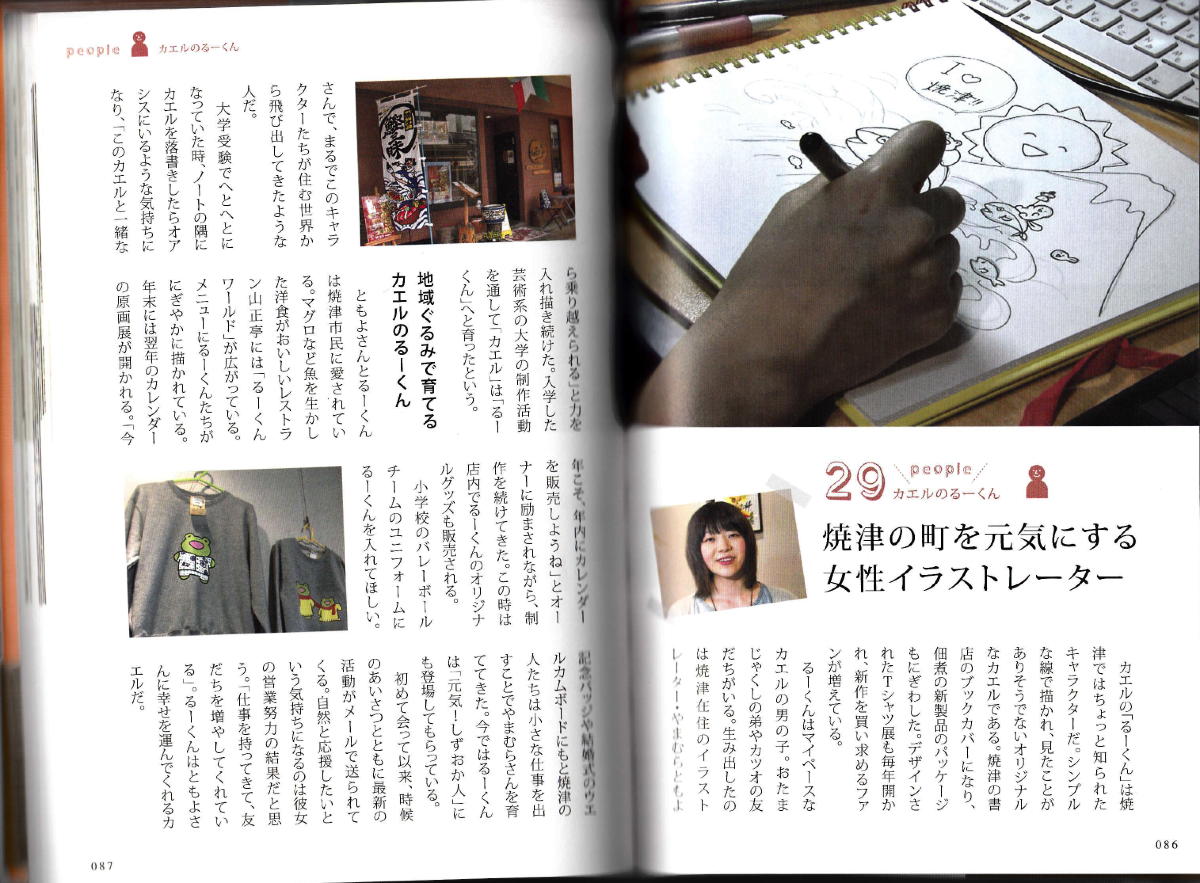 I♡
焼津!!
29
people
カエルのるーくん
焼津の町を元気にする
女性イラストレーター
カエルの「るーくん」は焼
津ではちょっと知られた
キャラクターだ。シンプル
な線で描かれ、見たことが
ありそうでないオリジナル
なカエルである。焼津の書
店のブックカバーになり、
佃煮の新製品のパッケージ
もにぎわした。デザインさ
れたTシャツ展も毎年開か
れ、新作を買い求めるファ
ンが増えている。
るーくんはマイペースな
カエルの男の子。おたま
じゃくしの弟やカツオの友
だちがいる。生み出したの
は焼津在住のイラスト
レーターやまむらともよ
086
people
カエルのるーくん
さんで、まるでこのキャラ
クターたちが住む世界か
ら飛び出してきたような
人だ。
大学受験でへとへとに
なっていた時、ノートの隅に
カエルを落書きしたらオア
シスにいるような気持ちに
なり、「このカエルと一緒な
ら乗り越えられる」と力を
入れ描き続けた。入学した
芸術系の大学の制作活動
を通して「カエル」は「るー
くん」へと育ったという。
地域ぐるみで育てる
カエルのるーくん
ともよさんとるーくん
は焼津市民に愛されてい
る。マグロなど魚を生かし
た洋食がおいしいレストラ
ン山正亭には「るーくん
ワールド」が広がっている。
メニューにるーくんたちが
にぎやかに描かれている。
年末には翌年のカレンダー
の原画展が開かれる。「今
年こそ、年内にカレンダー
を販売しようね」とオー
ナーに励まされながら、制
作を続けてきた。この時は
店内でるーくんのオリジナ
ルグッズも販売される。
小学校のバレーボール
チームのユニフォームに
るーくんを入れてほしい。
記念バッジや結婚式のウエ
ルカムボードにもと焼津の
人たちは小さな仕事を出
すことでやまむらさんを育
ててきた。今ではるーくん
は「元気!しずおか人」に
も登場してもらっている。
初めて会って以来、時候
のあいさつとともに最新の
活動がメールで送られて
くる。自然と応援したいと
いう気持ちになるのは彼女
の営業努力の結果だと思
う。「仕事を持ってきて、友
だちを増やしてくれてい
る」。るーくんはともよさ
んに幸せを運んでくれるカ
エルだ。
087